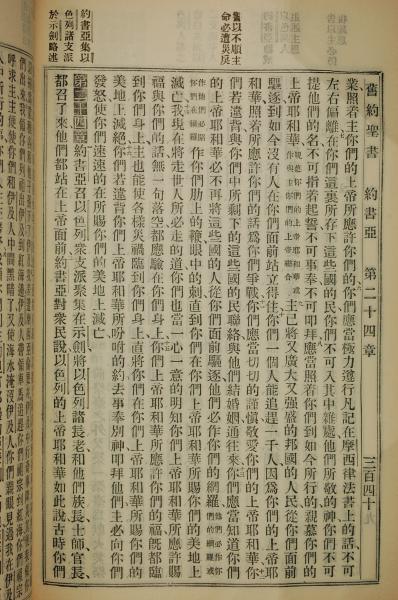 舊約聖書 約書亞 第二十四章 三百四十
業照着主你們的上帝所應許你們的你們應當極力遵行凡記在摩西律法書上的話不可
左右偏離在你們這裏所存下這些國的民你們不可入其中雜處他們所敬的神你們不可
提他們的名不可指着起誓不可事奉不可叩拜應當照着你們到如今所行的親慕你們的
上帝耶和華親慕你們的上帝耶和華或作與主你們的上帝聯合主已將又廣大又強盛的邦國的人民從你們面前
驅逐到如今沒有人在你們面前站立得住你們一個人能追趕一千人因爲你們的上帝耶
和華照着所應許你們的話爲你們爭戰你們應當切切的謹愼敬愛你們的上帝耶和華你
們若違背與你們中所剩下的這些國的民聯絡與他們結婚姻通往來你們應當知道你們
舊以不順主
命必遭災戾
的上帝耶和華必不再將這些國的人從你們面前驅逐他們必作你們的網羅他們必作你們的網羅或
作他們必陷你們在網羅作你們肋上的鞭眼中的刺直到你們在你們上帝耶和華所賜你們的美地上
滅亡我現在將走世人所必走的道你們也當一心一意的明知你們上帝耶和華所應許賜
福與你們的話無一句落空都應驗在你們身上你們上帝耶和華所應許你們的福旣都臨
到你們身上也能使各樣災禍臨到你們身上直將你們在你們上帝耶和華所賜你們的
美地上滅絕你們若違背你們上帝耶和華所吩咐的約去事奉別神叩拜他們主必向你們
發怒使你們速速的在所賜你們的美地上滅亡
約書亞集以
色列諸支派
於示劍略述
第二十四章約書亞召以色列衆支派聚集在示劍將以色列諸長老和他們族長士師官長
都召了來他們都站在上帝面前約書亞對衆民說以色列的上帝耶和華如此說古時你們